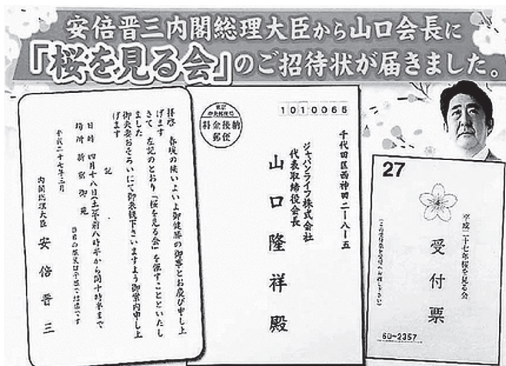 安倍晋三内閣総理大臣から山口会長に
「桜を見る会」のご招待状が届きました。
拝啓 春暖の候いよいよ御健勝の御事とお慶び申し上
げます
さて 左記のとおり「桜を見る会」を催すことといたし
ました
御夫妻おそろいにて御来観下さいますよう御案内申し上
げます
記
日時 四月十八日(土)午前八時半から同十時半まで
場所 新宿御苑
平成二十七年三月
内閣総理大臣 安倍晋三
料金後納
郵便
1010065
千代田区西神田二ー八ー五
ジャパンライフ株式会社
代表取締役会長
山口隆祥殿
27
平成二十七年桜を見る会
受付票
60-2357